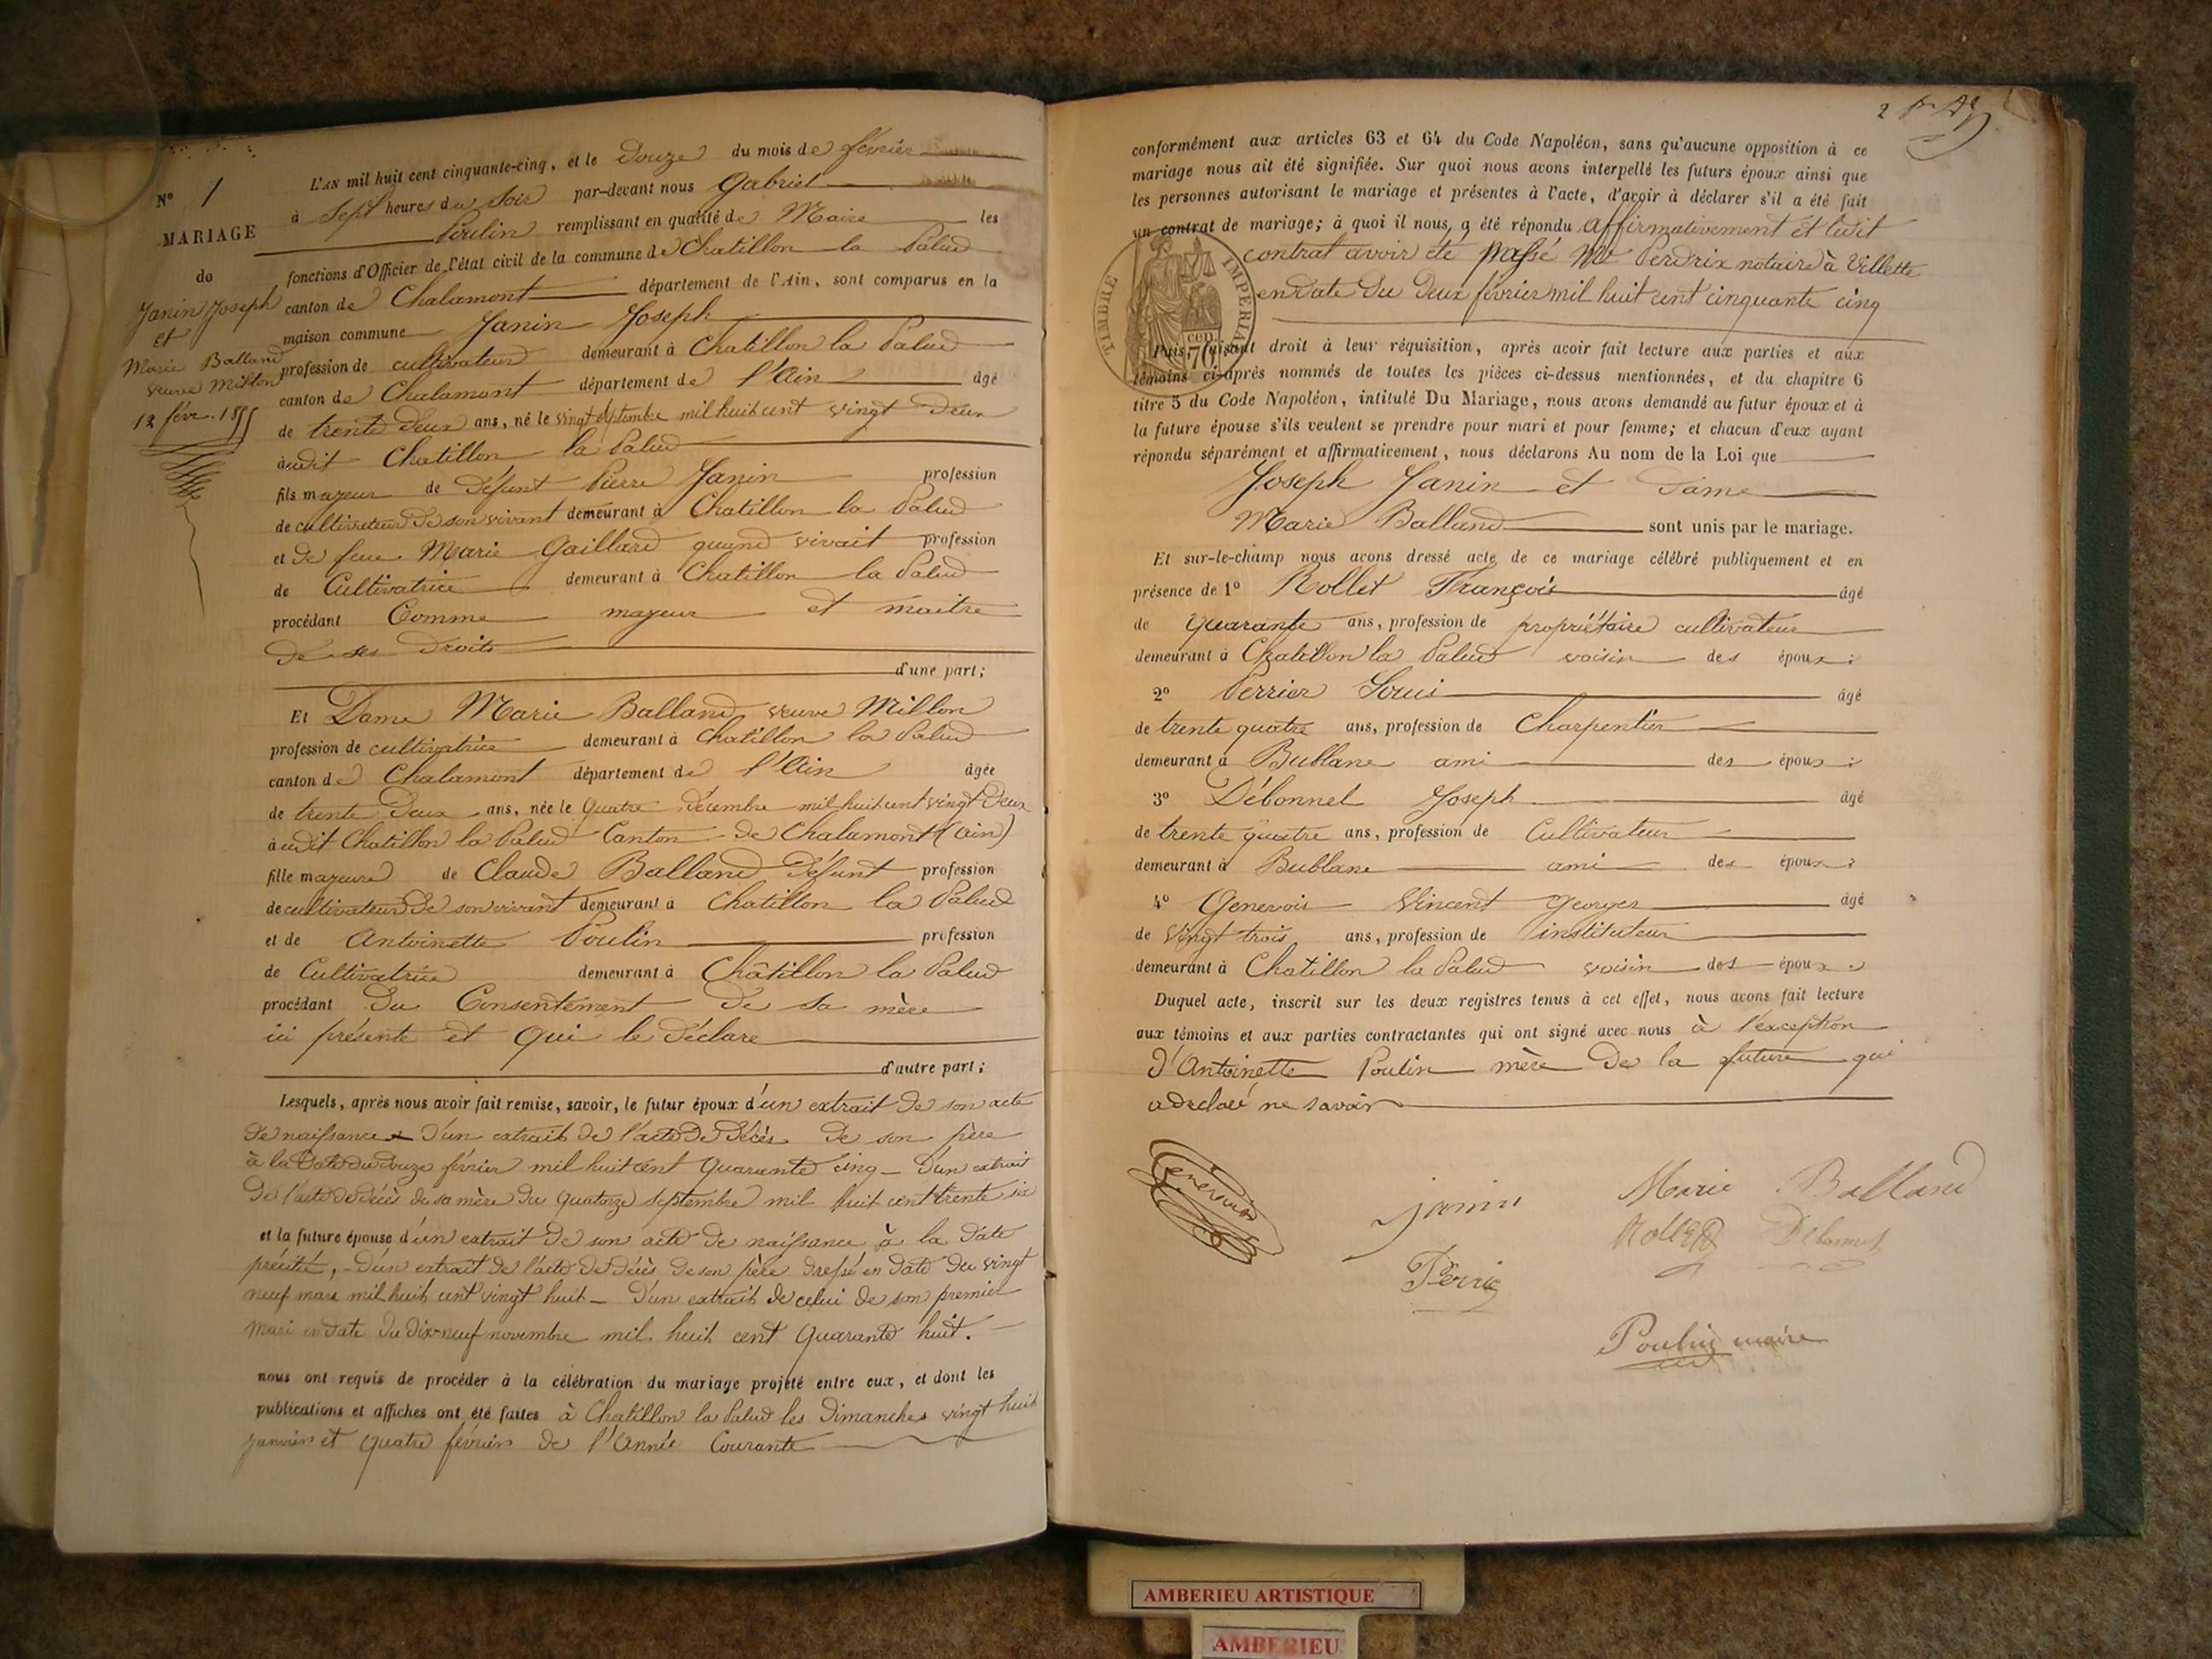 N° 1
MARIAGE
de
Janin Joseph
et
Marie Balland
veuve Millon
12 févr. 1855
L'AN mil huit cent cinquante-cinq, et le Douze du mois de février
à Sept heures du Soir par-devant nous Gabriel
Poulin remplissant en qualité de Maire les
fonctions d'Officier de l'état civil de la commune de Chatillon la Palud
canton de Chalamont département de l'Ain, sont comparus en la
maison commune Janin Joseph
profession de cultivateur demeurant à Chatillon la Palud
canton de Chalamont département de l'Ain âgé
de trente deux ans, né le vingt septembre mil huit cent vingt deux
audit Chatillon la Palud
fils majeur de défunt Pierre Janin profession
de cultivateur de son vivant demeurant à Chatillon la Palud
et de feue Marie Gaillard quand vivait profession
de Cultivatrice demeurant à Chatillon la Palud
procédant Comme majeur et maitre
de ses droits
d'une part;
Et Dame Marie Balland veuve Millon
profession de cultivatrice demeurant à Chatillon la Palud
canton de Chalamont département de l'Ain âgée
de trente deux ans, née le quatre décembre mil huit cent vingt deux
audit Chatillon la Palud Canton de Chalamont (Ain)
fille majeure de Claude Balland défunt profession
de cultivateur de son vivant demeurant à Chatillon la Palud
et de Antoinette Poulin profession
de Cultivatrice demeurant à Châtillon la Palud
procédant du Consentement de sa mère
ici présente et qui le déclare
d'autre part;
Lesquels, après nous avoir fait remise, savoir, le futur époux d'un extrait de son acte
de naissance d'un extrait de l'acte de décès de son père
à la date du douze février mil huit cent quarante cinq - d'un extrait
de l'acte de décès de sa mère du quatorze septembre mil huit cent trente six
et la future épouse d'un extrait de son acte de naissance à la date
précitée, - d'un extrait de l'acte de décès de son père dressé en date du vingt
neuf mars mil huit cent vingt huit - d'un extrait de celui de son premier
mari en date du dix-neuf novembre mil huit cent quarante huit.
nous ont requis de procéder à la célébration du mariage projeté entre eux, et dont les
publications et affiches ont été faites à Chatillon la Palud les Dimanches vingt huit
janvier et quatre février de l'année Courante
2
conformément aux articles 63 et 64 du Code Napoléon, sans qu'aucune opposition à ce
mariage nous ait été signifiée. Sur quoi nous avons interpellé les futurs époux ainsi que
les personnes autorisant le mariage et présentes à l'acte, d'avoir à déclarer s'il a été fait
un contrat de mariage; à quoi il nous a été répondu affirmativement et ledit
contrat avoir été passé Me Perdrix notaire à Villette
en date du deux février mil huit cent cinquante cinq
TIMBRE IMPERIAL
70 cen
Puis, faisant droit à leur réquisition, après avoir fait lecture aux parties et aux
témoins ci-après nommés de toutes les pièces ci-dessus mentionnées, et du chapitre 6
titre 5 du Code Napoléon, intitulé Du Mariage, nous avons demandé au futur époux et à
la future épouse s'ils veulent se prendre pour mari et pour femme; et chacun d'eux ayant
répondu séparément et affirmativement, nous déclarons Au nom de la Loi que
Joseph Janin et Dame
Marie Balland sont unis par le mariage.
Et sur-le-champ nous avons dressé acte de ce mariage célébré publiquement et en
présence de 1° Rollet François âgé
de quarante ans, profession de propriétaire cultivateur
demeurant à Chatillon la Palud voisin des époux;
2° Perrier Louis âgé
de trente quatre ans, profession de Charpentier
demeurant à Bublane ami des époux;
3° Débonnel Joseph âgé
de trente quatre ans, profession de Cultivateur
demeurant à Bublane ami des époux;
4° Genevois Vincent Georges âgé
de Vingt trois ans, profession de instituteur
demeurant à Chatillon la Palud voisin des époux.
Duquel acte, inscrit sur les deux registres tenus à cet effet, nous avons fait lecture
aux témoins et aux parties contractantes qui ont signé avec nous à l'exception
d'Antoinette Poulin mère de la future qui
a déclaré ne savoir
Genevois janin Marie Balland
Rollet Debonnel
Perrie
Poulin maire
AMBERIEU ARTISTIQUE
AMBERIEU